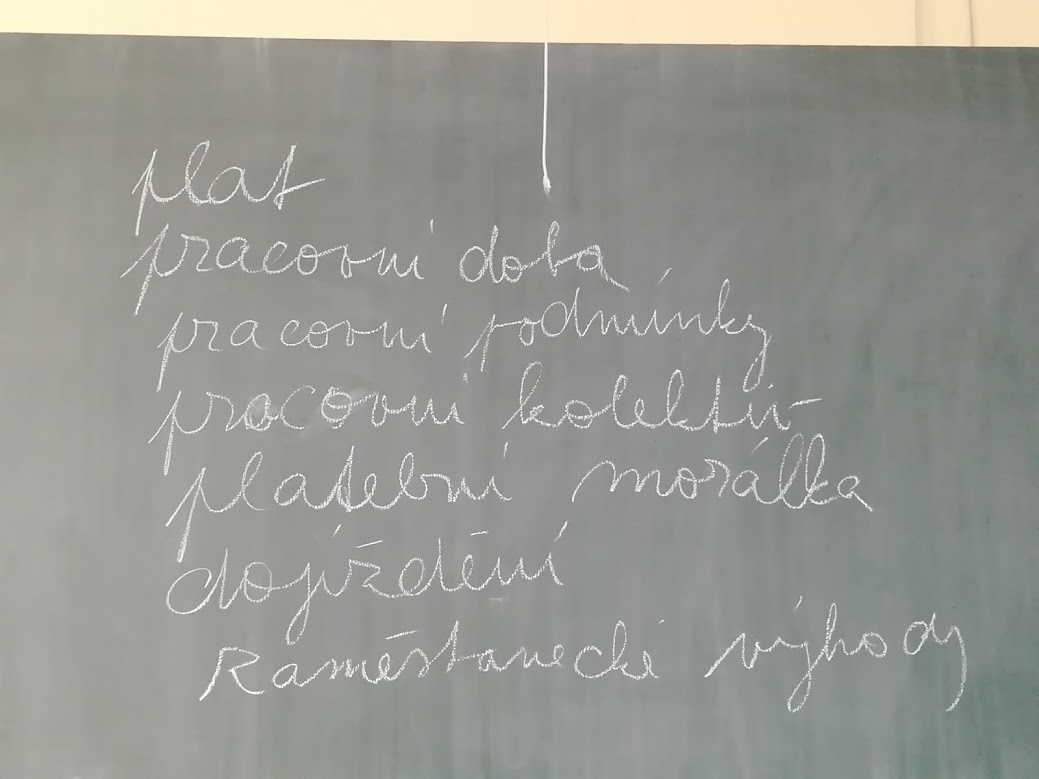 plat
pracovní doba
pracovní podmínky
pracovní kolektiv
platební morálka
dojíždění
zaměstanecké výhody